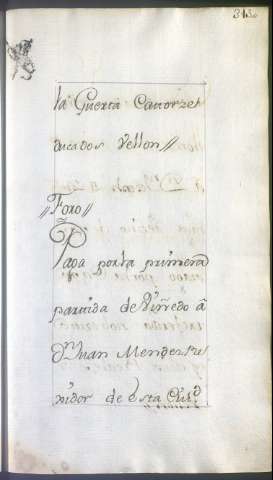 la Guerta Catorze
ducados vellon //
// Foro //
Paga por la primera
partida de Viñedo â
Dn Juan Mendez Re
xidor de esta Ciud